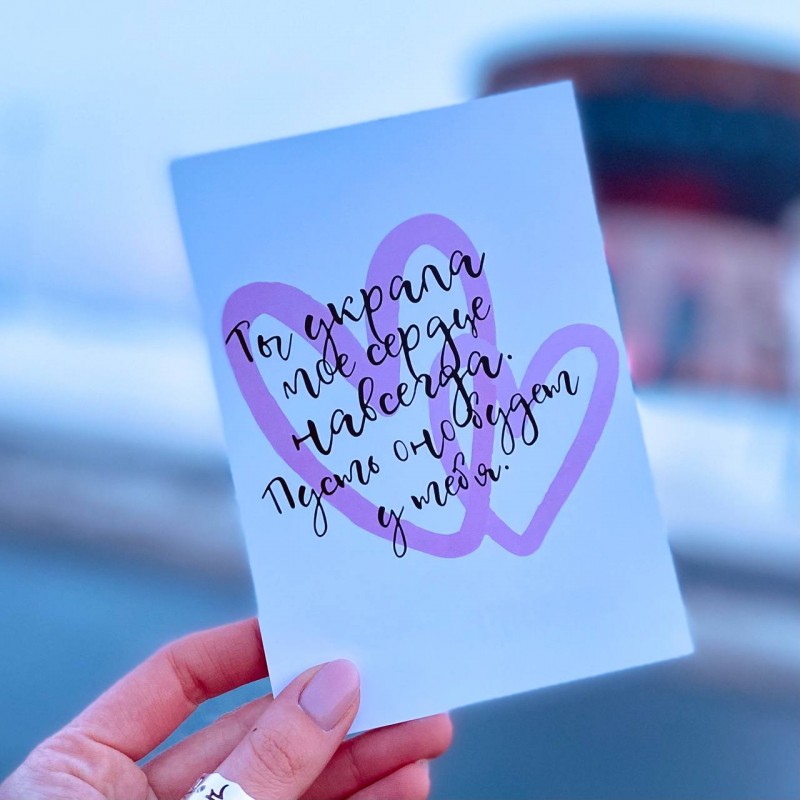 Ты украла
мое сердце
навсегда.
Пусть оно будет
у тебя.